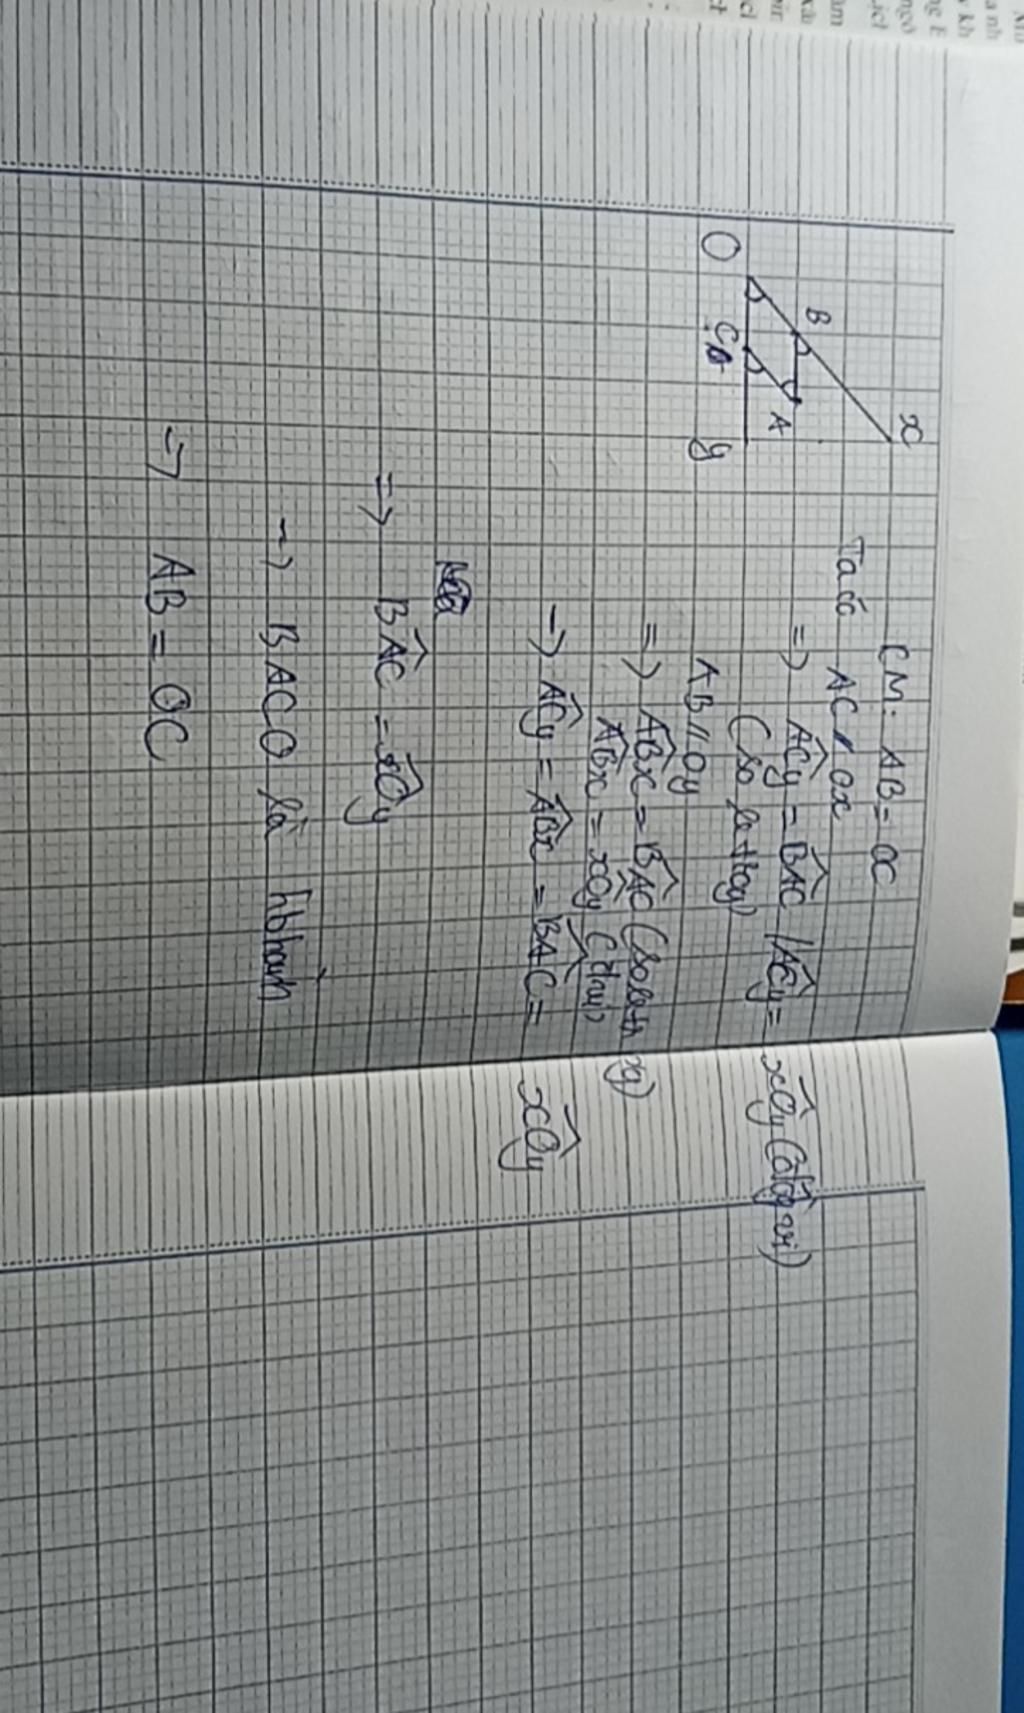 x
B
O
C
A
y
CM: AB = OC
Ta có AC // Ox
=> ACy = BAC / ACy = xOy (đồng vị)
(so le trog)
AB // Oy
=> ABx = BAC (so le tr
ABx = xOy
-> ACy = ABx = BAC = xOy
=> BAC = xOy
-> BACO là hbhành
-> AB = OC